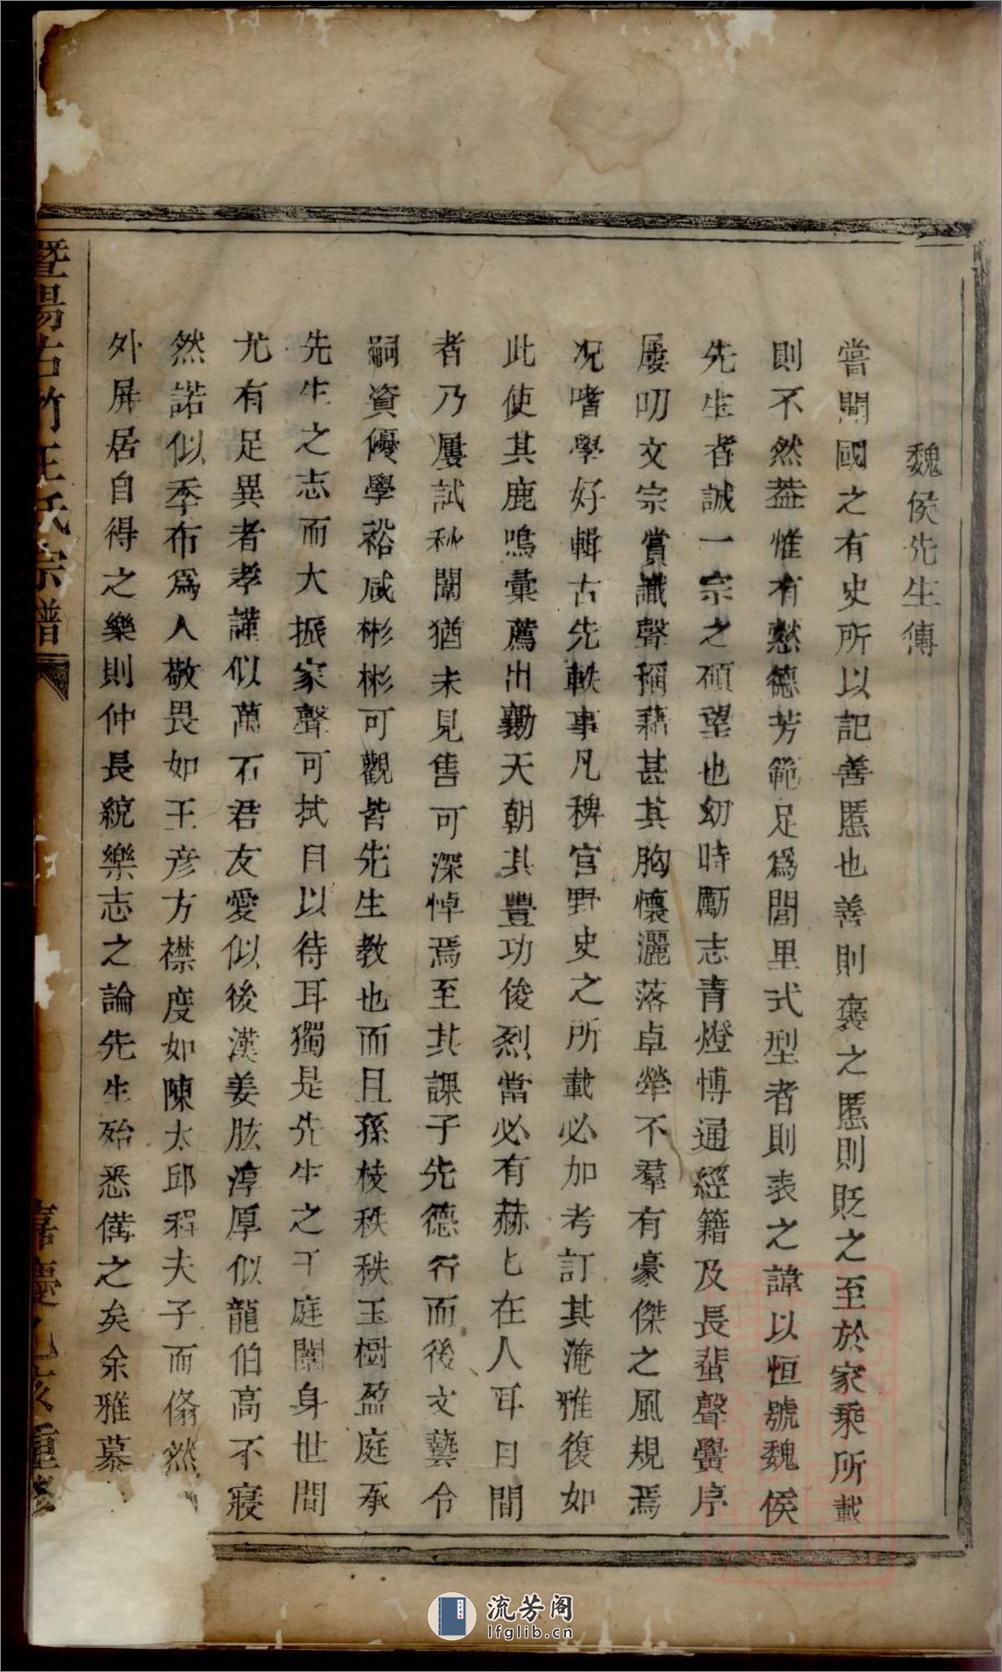 魏侯先生傳
嘗聞國之有史所以記善慝也善則褒之慝則貶之至於家乘所載
則不然葢惟有懿德芳範足爲閭里式型者則表之諱以恒號魏侯
先生者誠一宗之碩望也幼時勵志青燈博通經籍及長蜚聲黌序
屢叨文宗賞識聲稱藉甚其胸懷灑落卓犖不羣有豪傑之風規焉
况嗜學好輯古先軼事凡稗官野史之所載必加考訂其淹雅復如
此使其鹿鳴彙薦出勷天朝其豐功俊烈當必有赫匕在人耳目間
者乃屢試秋闈猶未見售可深悼焉至其課子先德行而後文藝令
嗣資優學裕咸彬彬可觀皆先生教也而且孫枝秩秩玉樹盈庭承
先生之志而大振家聲可拭目以待耳獨是先生之于庭闈身世間
尤有足異者孝謹似萬石君友愛似後漢姜肱淳厚似龍伯高不寢
然諾似季布爲人敬畏如王彥方襟度如陳太邱程夫子而翛然
外屏居自得之樂則仲長統樂志之論先生殆悉備之矣余雅慕
暨陽古竹王氏宗譜
嘉慶乙亥重修
流芳阁
lfglib.cn